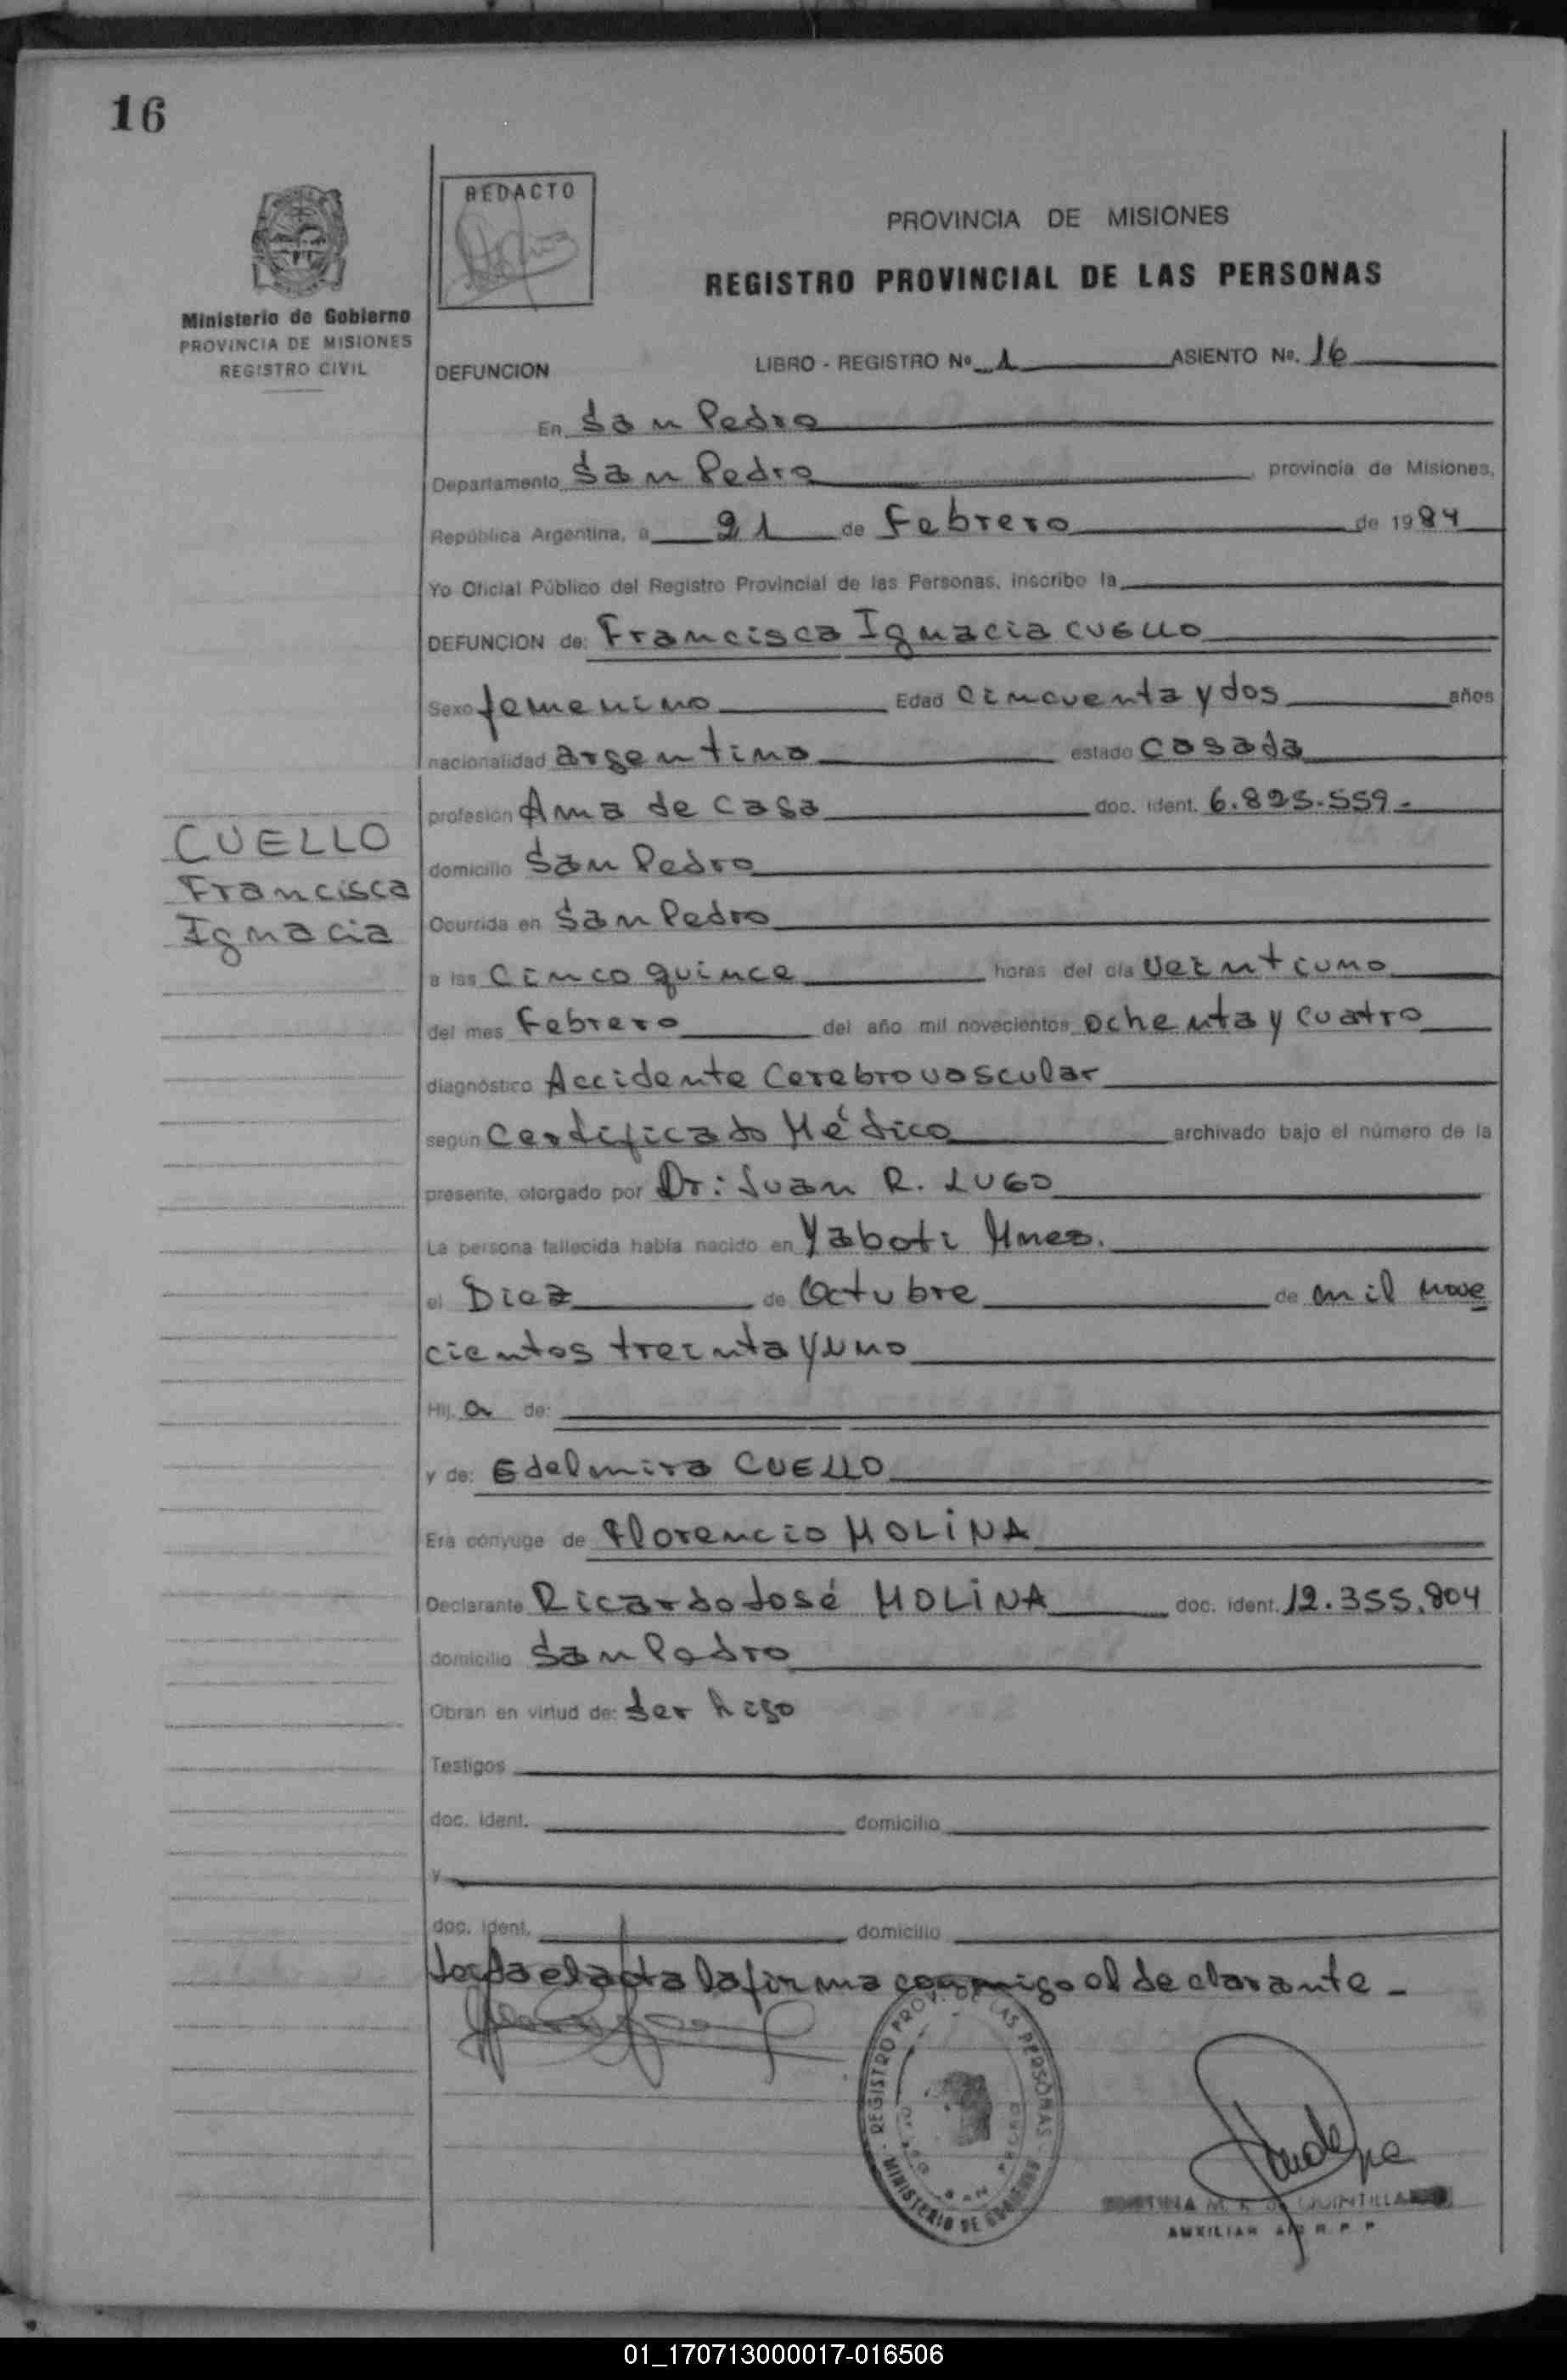 16
REDACTO
PROVINCIA DE MISIONES
REGISTRO PROVINCIAL DE LAS PERSONAS
Ministerio de Gobierno
PROVINCIA DE MISIONES
REGISTRO CIVIL
DEFUNCION LIBRO - REGISTRO Nº 1 ASIENTO Nº. 16
En San Pedro
Departamento San Pedro provincia de Misiones,
República Argentina, a 21 de Febrero de 1984
Yo Oficial Público del Registro Provincial de las Personas, inscribo la
DEFUNCION de: Francisca Ignacia CUELLO
Sexo femenino Edad Cincuenta y dos años
nacionalidad argentina estado Casada
profesión Ama de Casa doc. ident. 6.825.559.-
CUELLO
Francisca
Ignacia
domicilio San Pedro
Ocurrida en San Pedro
a las Cinco quince horas del día Veintiuno
del mes Febrero del año mil novecientos ochenta y cuatro
diagnóstico Accidente Cerebrovascular
según Certificado Médico archivado bajo el número de la
presente, otorgado por Dr: Juan R. LUGO
La persona fallecida había nacido en Yaboti Mnes.
el Diez de Octubre de mil nove
cientos treinta y uno
Hij. a de:
y de: Edelmira CUELLO
Era cónyuge de Florencio MOLINA
Declarante Ricardo José MOLINA doc. ident. 12.355.804
domicilio San Pedro
Obran en virtud de: Ser hijo
Testigos
doc. ident. domicilio
y
doc. ident. domicilio
Leída el acta la firma conmigo el declarante -
REGISTRO PROV. DE LAS PERSONAS
MINISTERIO DE GOBIERNO
M. R. de QUINTILLA
AUXILIAR R. P. P
01_170713000017-016506